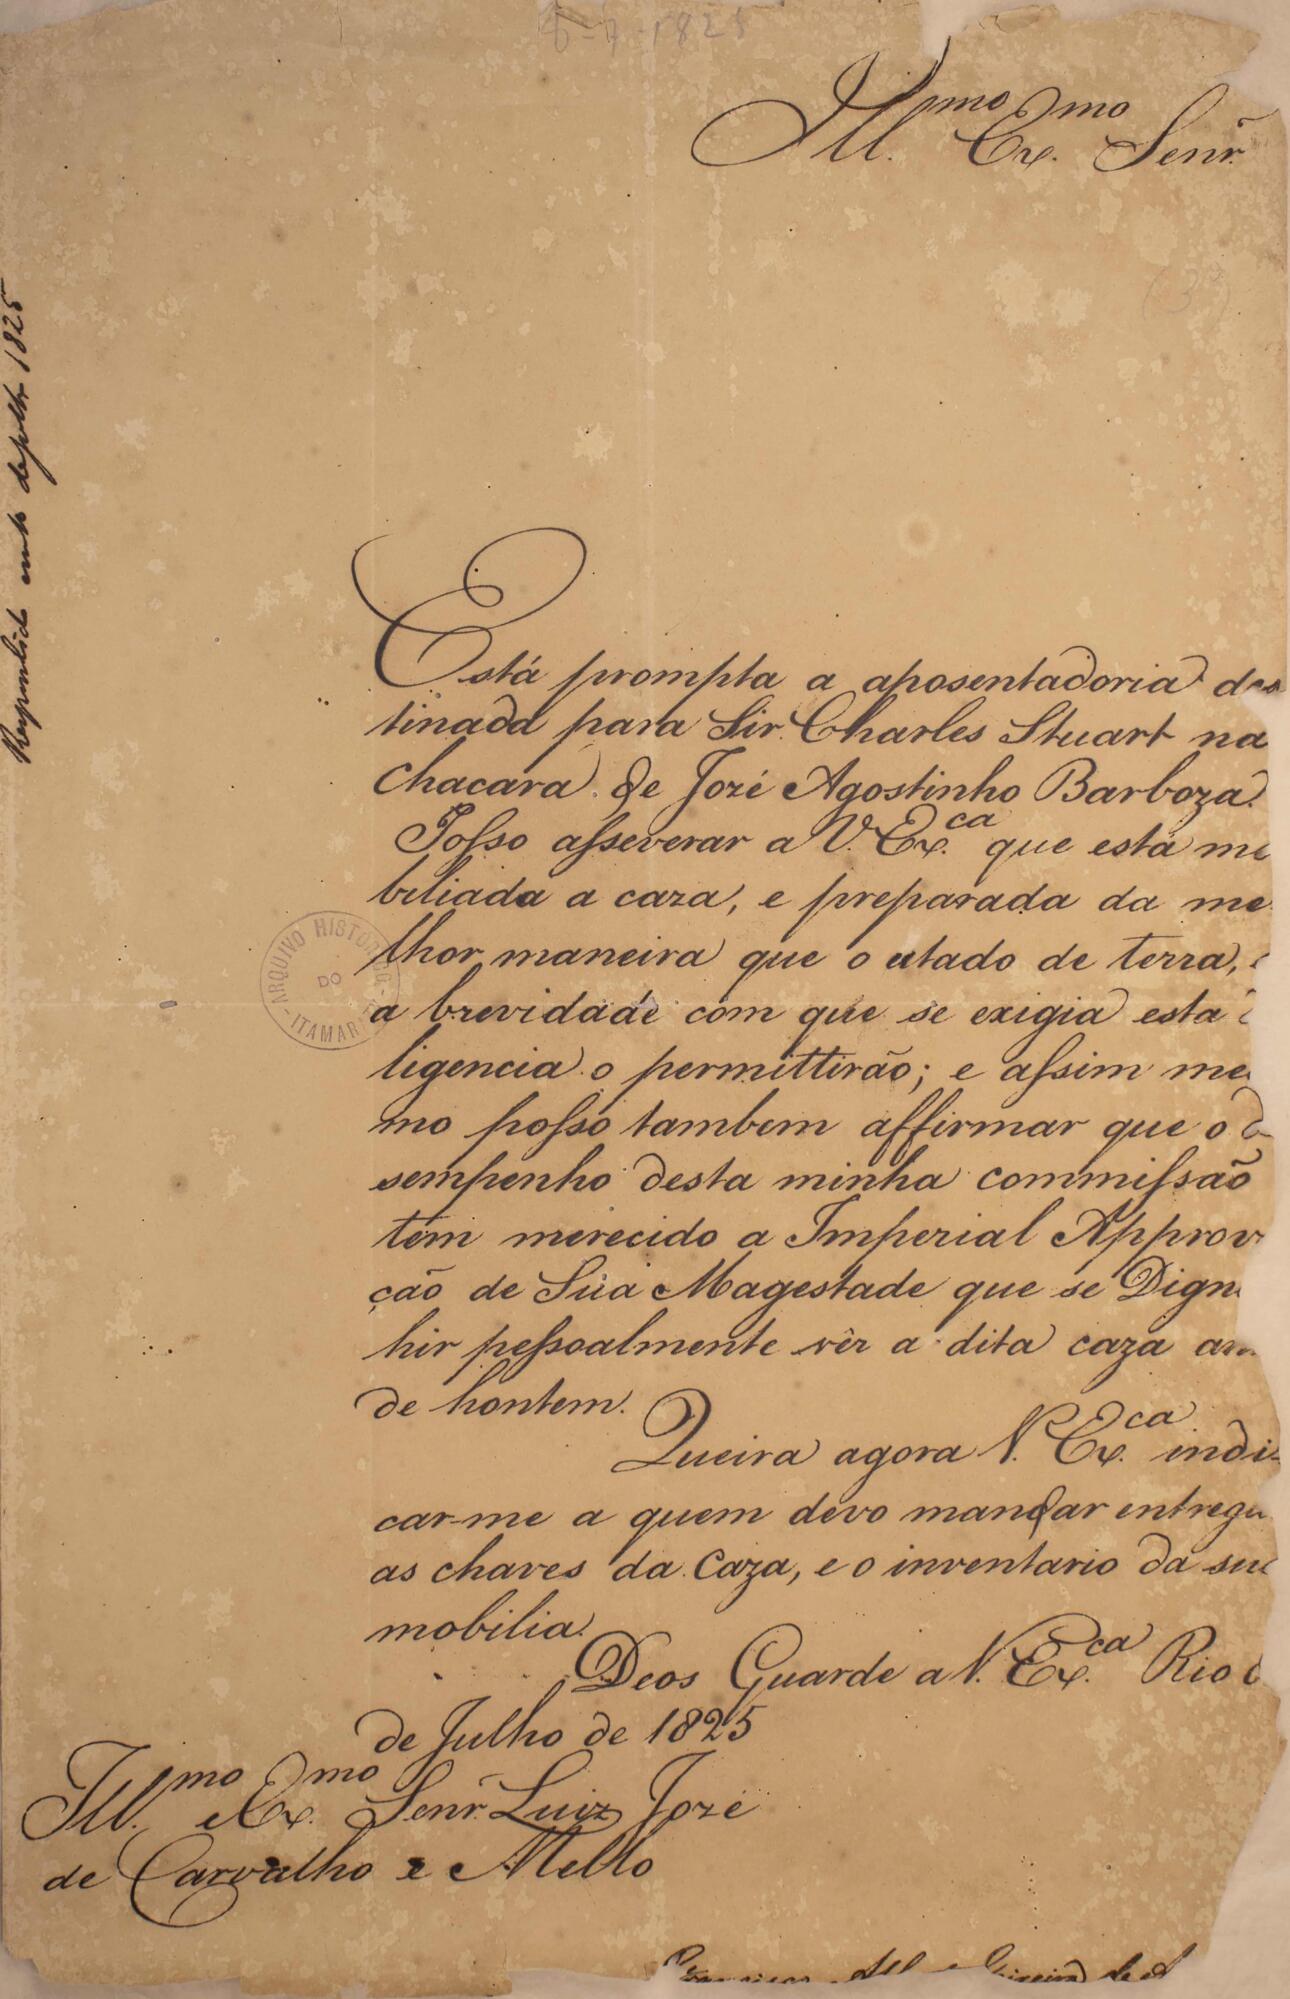 6-7-1825
Ill.mo Ex.mo Senr.
(37)
Respondido em 10 de julho 1825
Está prompta a aposentadoria des
tinada para Sir Charles Stuart na
chacara de José Agostinho Barboza.
Posso asseverar a V. Ex.ca que está mo
biliada a caza, e preparada da me
lhor maneira que o estado de terra, e
a brevidade com que se exigia esta
ligencia o permittirão; e assim mes
mo posso tambem affirmar que o de
sempenho desta minha commissão
tem merecido a Imperial Approv
ção de Sua Magestade que se Dign
hir pessoalmente vêr a dita caza an
de hontem.
Queira agora V. Ex.ca indi-
car-me a quem devo mandar entregar
as chaves da Caza, e o inventario da sua
mobilia.
Deos Guarde a V. Ex.ca Rio
de Julho de 1825
Ill.mo e Ex.mo Senr. Luiz José
de Carvalho e Mello
ARQUIVO HISTÓRICO DO ITAMAR
Francisco